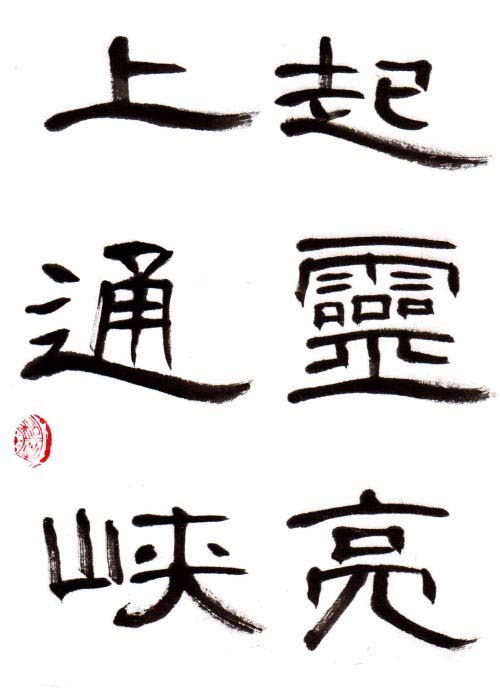 起靈亮
上通峡